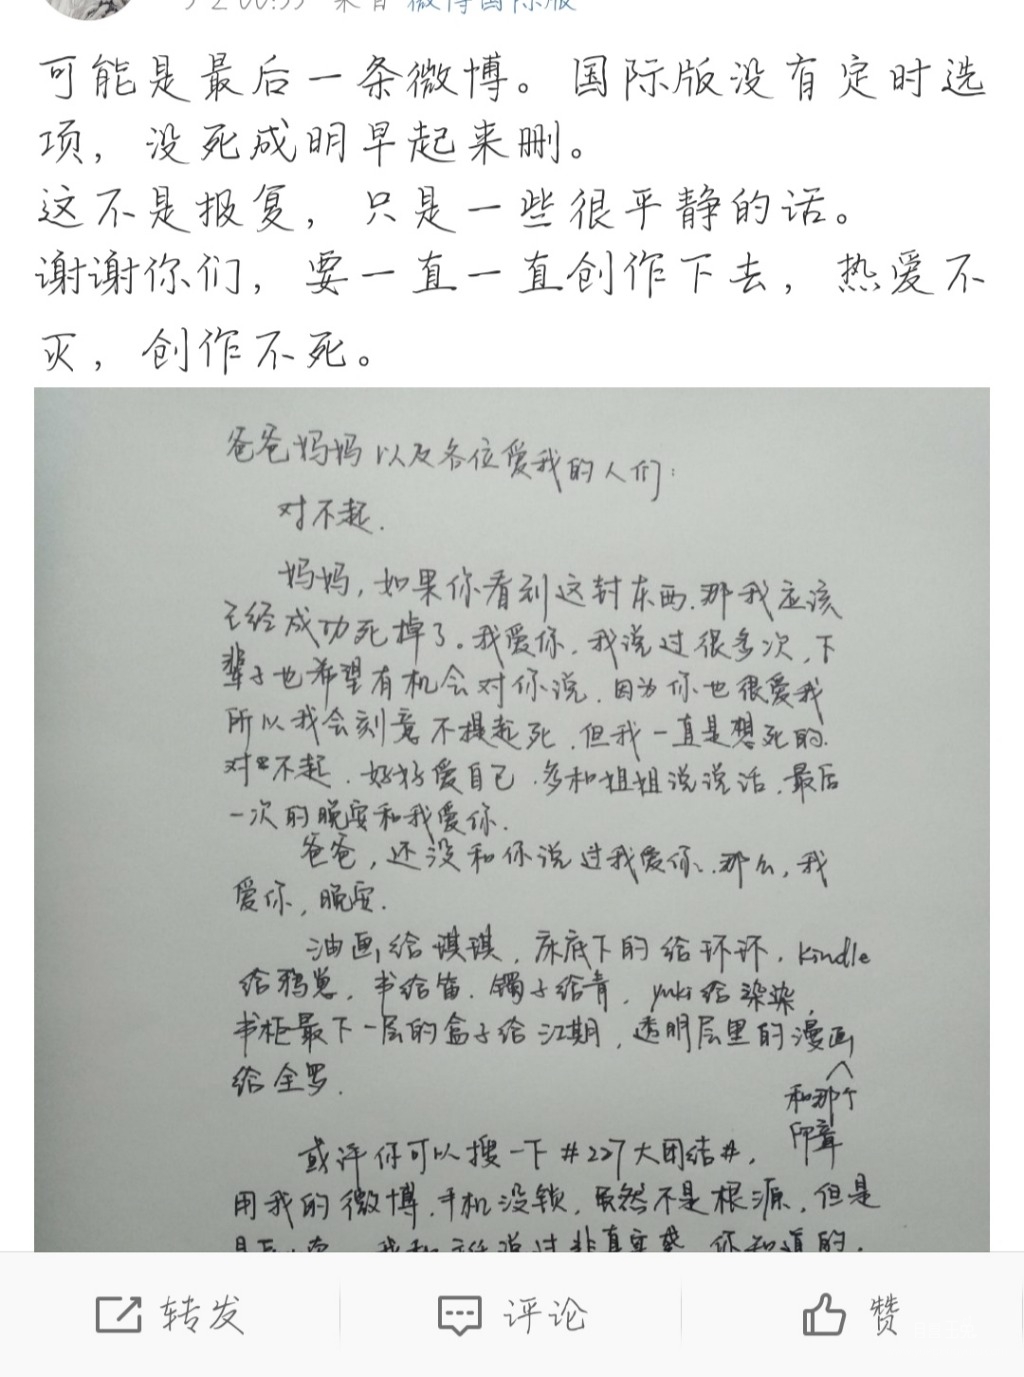 来自 微博国际版
可能是最后一条微博。国际版没有定时选
项，没死成明早起来删。
这不是报复，只是一些很平静的话。
谢谢你们，要一直一直创作下去，热爱不
灭，创作不死。
爸爸妈妈以及各位爱我的人们：
对不起.
妈妈，如果你看到这封东西.那我应该
已经成功死掉了。我爱你.我说过很多次，下
辈子也希望有机会对你说.因为你也很爱我
所以我会刻意不提起死.但我一直是想死的.
对不起.好好爱自己.多和姐姐说说话.最后
一次的晚安和我爱你.
爸爸，还没和你说过我爱你.那么，我
爱你，晚安.
油画给琪琪，床底下的给环环，kindle
给鸦崽，书给笛.镯子给青，yuki给染染，
书柜最下一层的盒子给江期，透明层里的漫画
和那个
印章
给全罗.
或许你可以搜一下#227大团结#，
用我的微博.手机没锁，虽然不是根源，但是
你知道的.
转发
评论
赞